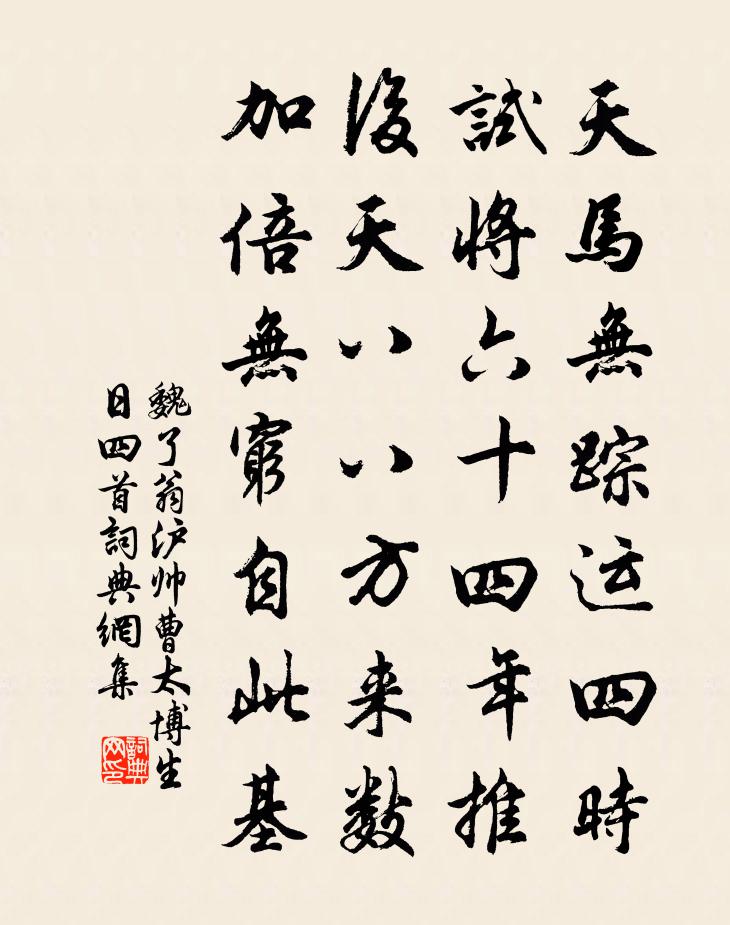 天馬無踪运四時
試將六十四年推
後天八八方来数
加倍無窮自此基
魏了翁沪帅曹太博生
日四首詞典網集
詞典网印